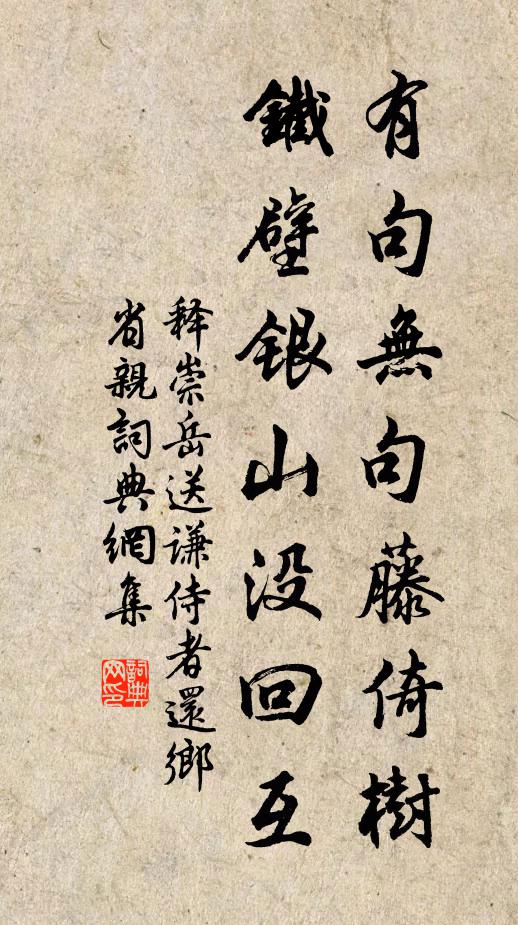 有句無句藤倚樹
鐵壁銀山没回互
释崇岳送谦侍者還鄉
省親詞典網集
詞典
网印